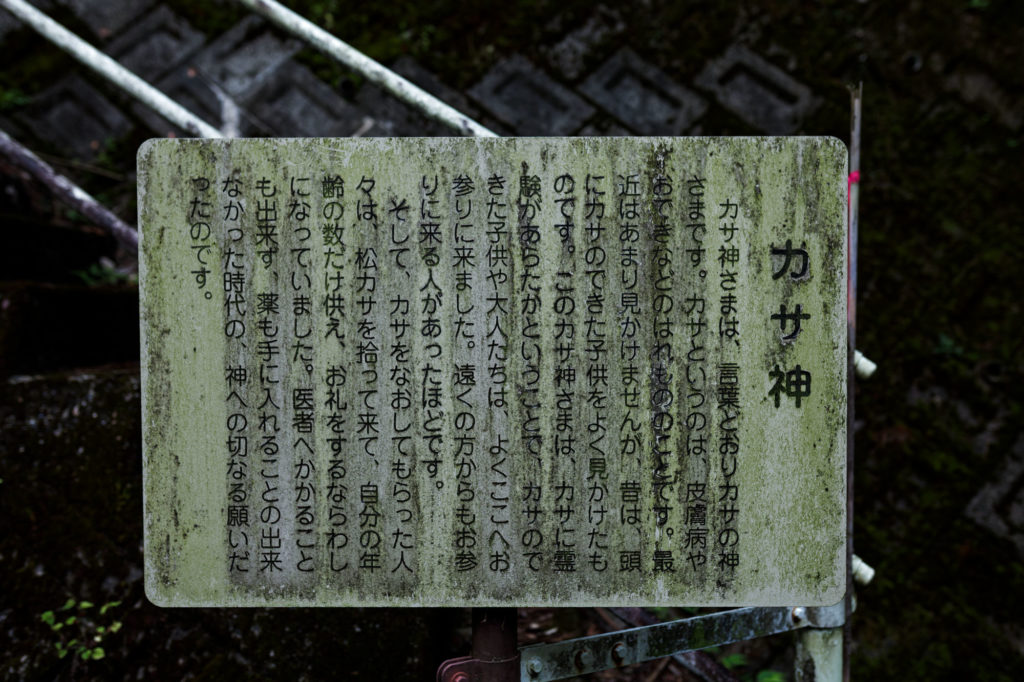 カサ神
カサ神さまは、言葉どおりカサの神
さまです。カサというのは、皮膚病や
おできなどのはれもののことです。最
近はあまり見かけませんが、昔は、頭
にカサのできた子供をよく見かけたも
のです。このカサ神さまは、カサに霊
験があらたかということで、カサので
きた子供や大人たちは、よくここへお
参りに来ました。遠くの方からもお参
りに来る人があったほどです。
そして、カサをなおしてもらった人
々は、松カサを拾って来て、自分の年
齢の数だけ供え、お礼をするならわし
になっていました。医者へかかること
も出来ず、薬も手に入れることの出来
なかった時代の、神への切なる願いだ
ったのです。